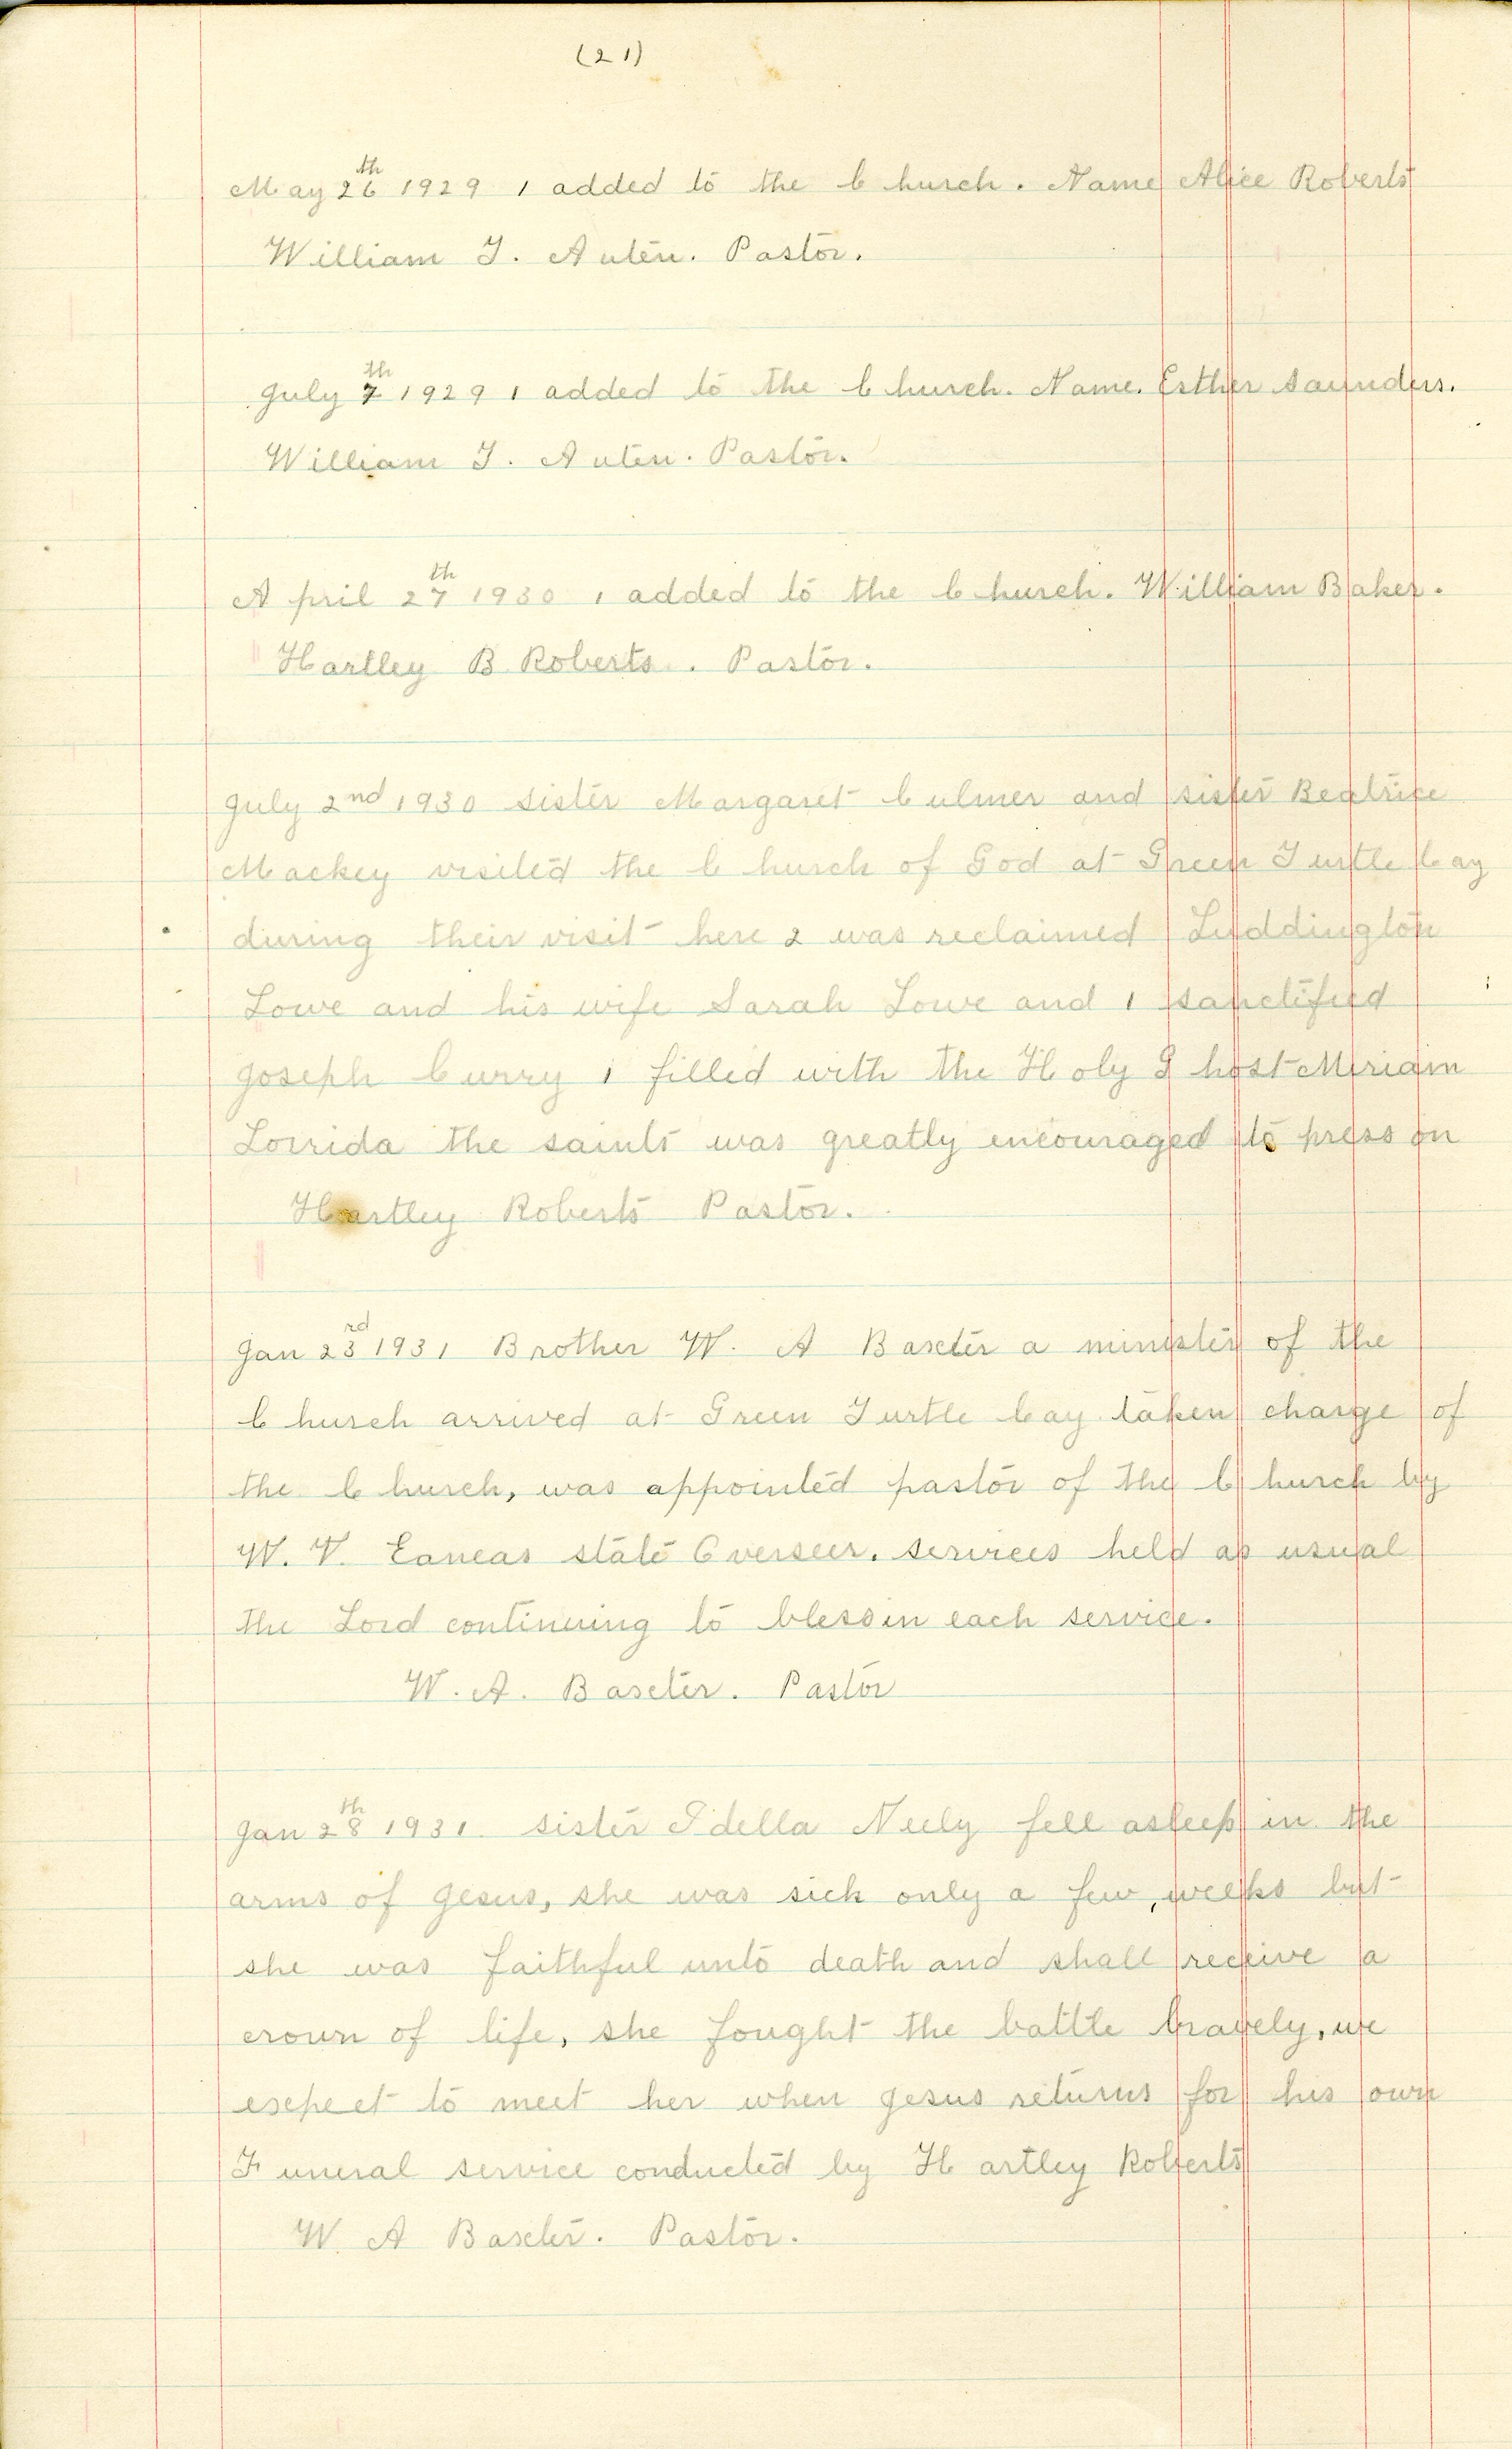 (21)
May 26th 1929 1 added to the Church. Name Alice Roberts
William J. Auten. Pastor.
July 7th 1929 1 added to the Church. Name. Esther Saunders.
William J. Auten. Pastor.
April 27th 1930 1 added to the Church. William Baker.
Hartley B Roberts. Pastor.
July 2nd 1930 sister Margaret Culmer and sister Beatrice
Mackey visited the Church of God at Green Turtle Cay
during their visit here 2 was reclaimed Luddington
Lowe and his wife Sarah Lowe and 1 sanctified
Joseph Curry 1 filled with the Holy Ghost Miriam
Lorrida the saints was greatly encouraged to press on
Hartley Roberts Pastor.
Jan 23rd 1931 Brother W. A Baxter a minister of the
Church arrived at Green Turtle Cay taken charge of
the Church, was appointed pastor of the Church by
W. V. Eaneas state Overseer. services held as usual
the Lord continuing to bless in each service.
W. A. Baxter. Pastor
Jan 28th 1931 sister Idella Neely fell asleep in the
arms of Jesus, she was sick only a few, weeks but
she was faithful unto death and shall receive a
crown of life, she fought the battle bravely, we
expect to meet her when Jesus returns for his own
Funeral service conducted by Hartley Roberts
W. A Baxter. Pastor.